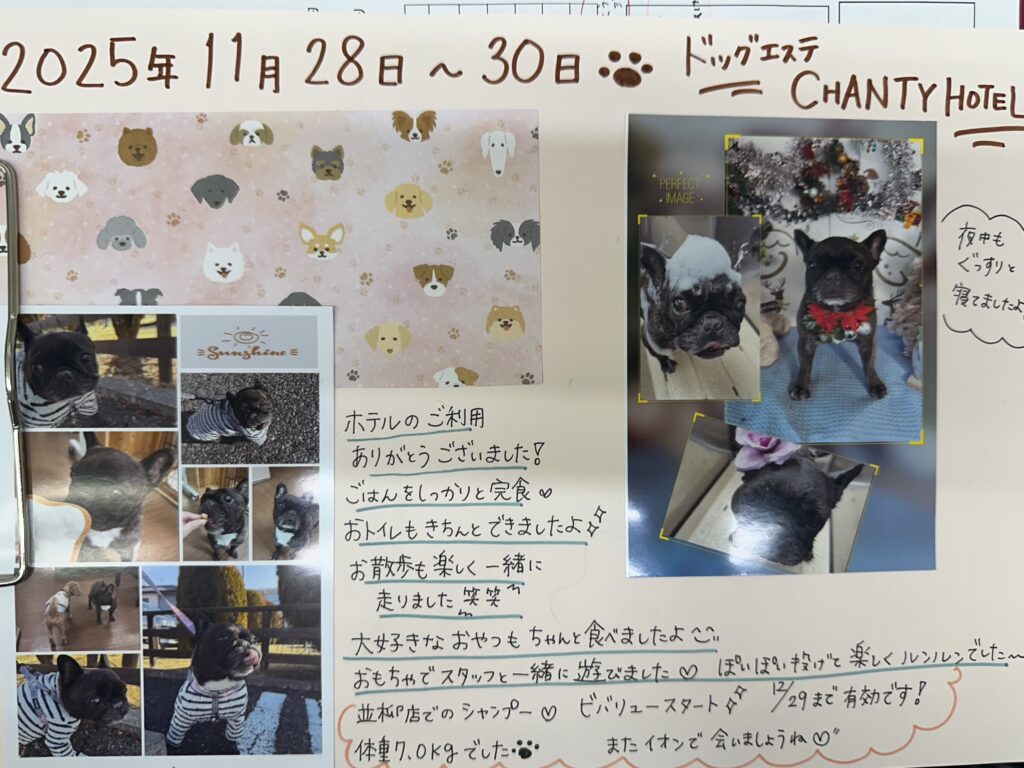 2025年 11月 28日 ~ 30日
ドッグエステ
CHANTY HOTEL
PERFECT
IMAGE
夜中も
ぐっすりと
寝てましたよ
Sunshine
ホテルの ご利用
ありがとう ございました!
ごはんをしっかりと完食♡
おトイレも きちんと できましたよ
お散歩も 楽しく 一緒に
走りました 笑笑
大好きな おやつも ちゃんと食べましたよ
おもちゃで スタッフと 一緒に 遊びました ♡ ぽいぽい投げて 楽しく ルンルンでした~
店でのシャンプー♡ ビバリュースタート 12/29まで 有効です!
体重7.0kgでした またイオンで 会いましょうね♡